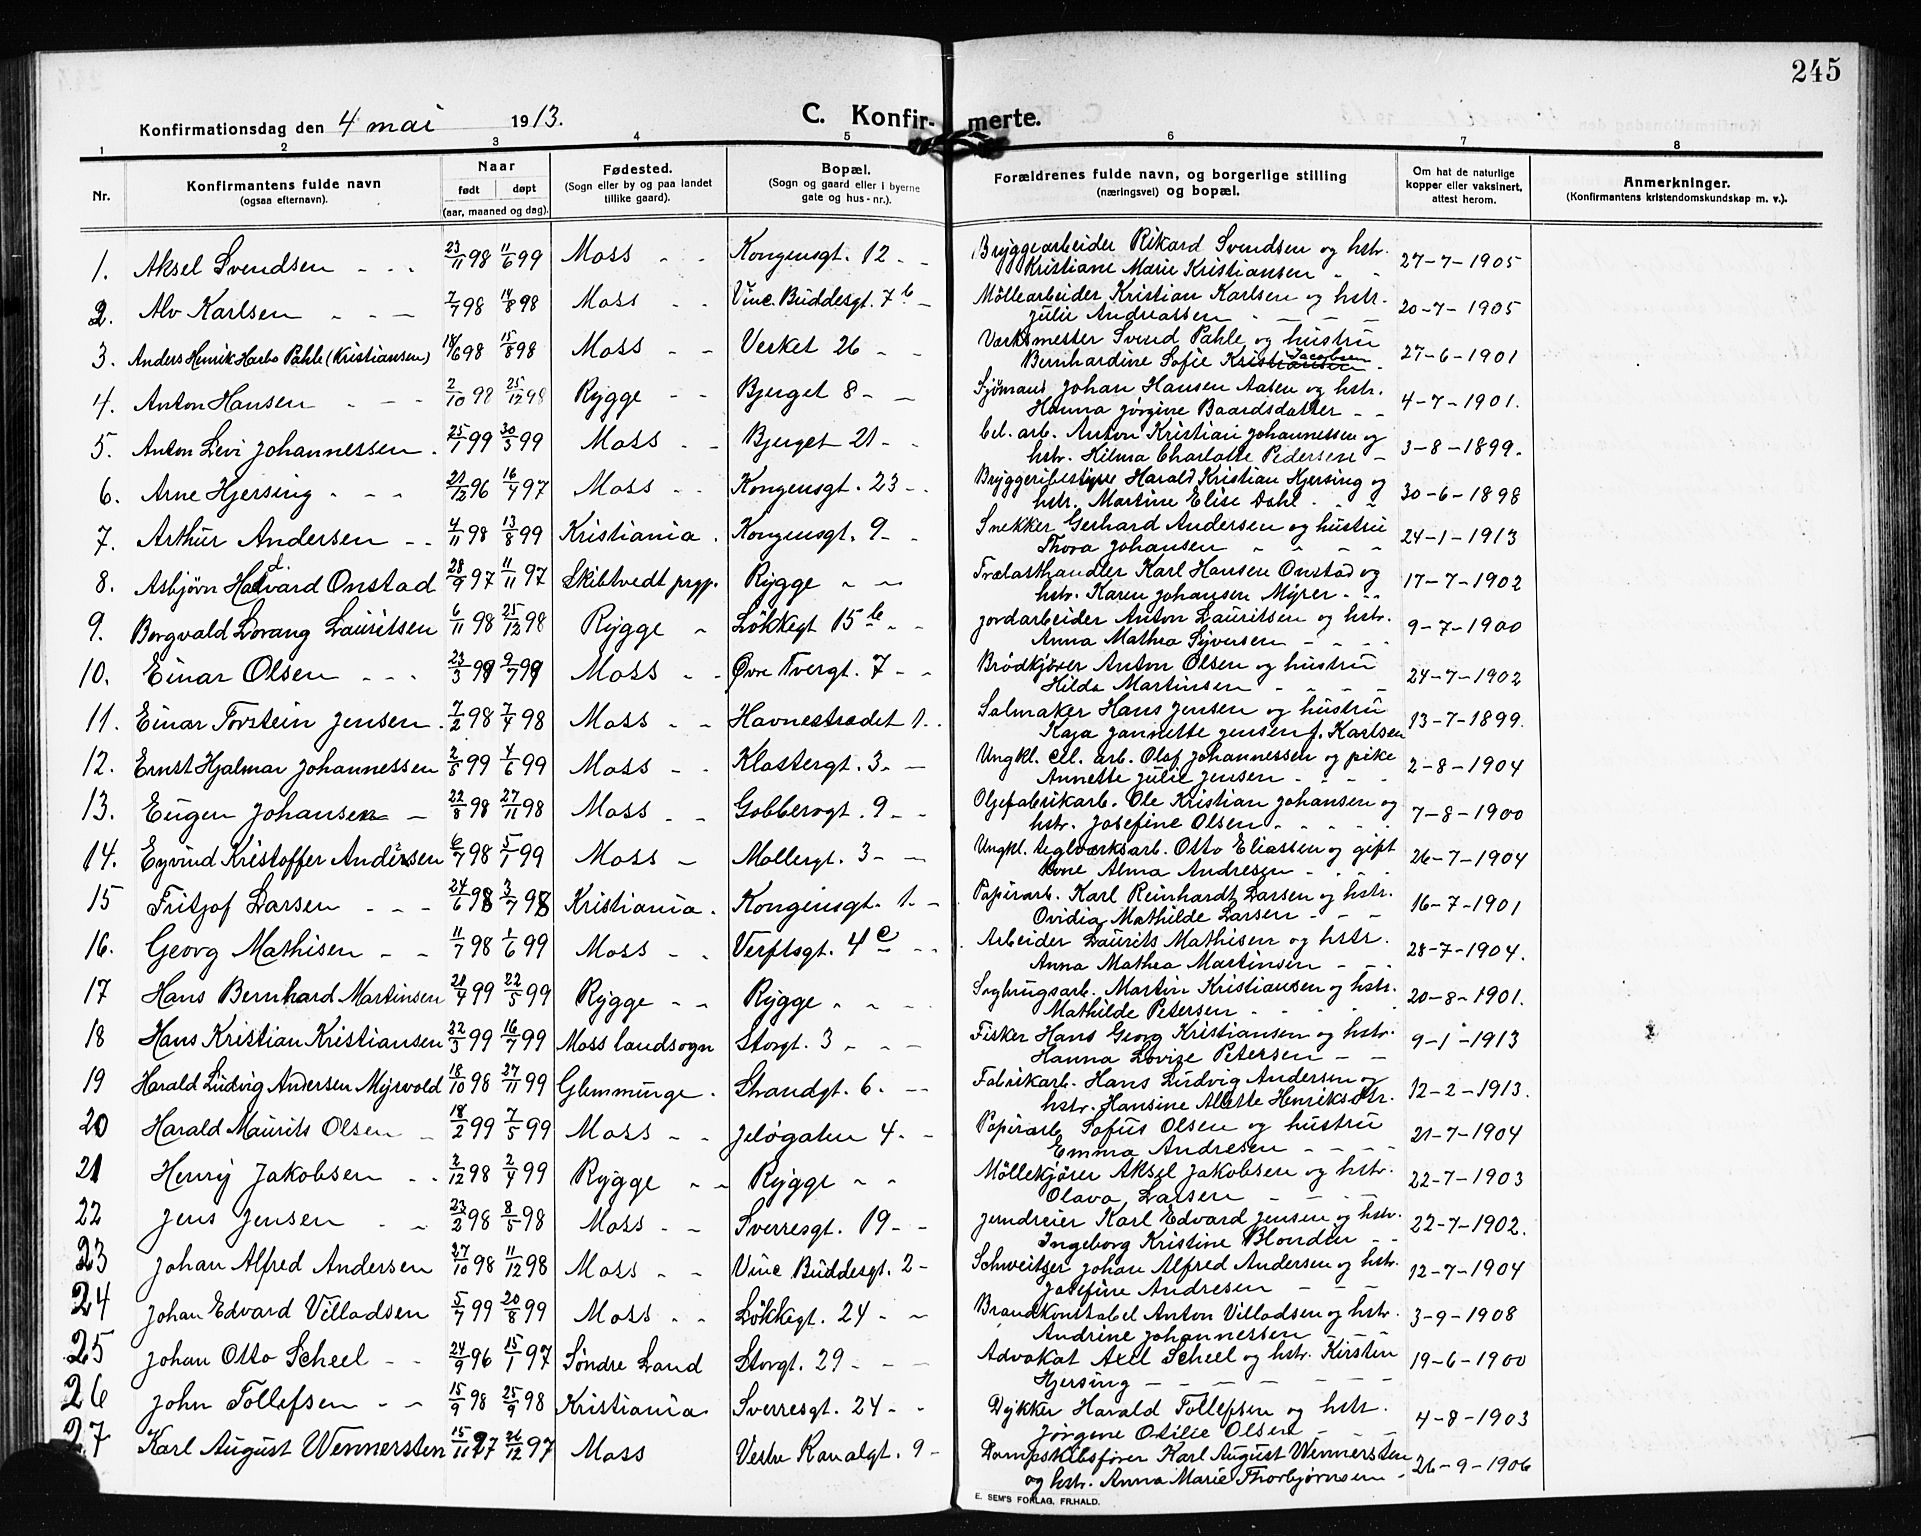 245
Konfirmationsdag den 4 mai 1913.
C. Konfirmerte.
1 2 3 4 5 6 7 8
Nr. Konfirmantens fulde navn (ogsaa efternavn). Naar født døpt (aar, maaned og dag). Fødested. (Sogn eller by og paa landet tillike gaard). Bopæl. (Sogn og gaard eller i byerne gate og hus-nr.). Forældrenes fulde navn, og borgerlige stilling (næringsvei) og bopæl. Om hat de naturlige kopper eller vaksinert, attest herom. Anmerkninger. (Konfirmantens kristendomskundskap m. v.).
1. Aksel Svendsen 23/11 98 11/6 99 Moss Kongensgt. 12 Bryggearbeider Rikard Svendsen og hstr. 27-7-1905
Kristiane Marie Kristiansen
2. Alv Karlsen 7/7 98 14/8 98 Moss Vinc. Buddesgt. 7 b Möllearbeider Kristian Karlsen og hstr. 20-7-1905
Julie Andreassen
3. Anders Henrik Harbo Pahle (Kristiansen) 18/6 98 15/8 98 Moss Verket 26 Værksmester Svend Pahle og hustru 27-6-1901
Bernhardine Sofie Kristiansen Jacobsen
4. Anton Hansen 2/10 98 25/12 98 Rygge Bjerget 8 Sjømand Johan Hansen Aasen og hstr. 4-7-1901.
Hanna Jørgine Baardsdatter
5. Anton Levi Johannessen 25/1 99 30/3 99 Moss Bjerget 21 Cel. arb. Anton Kristian Johannessen og 3-8-1899.
hstr. Hilma Charlotte Pedersen
6. Arne Hjersing 21/12 96 16/4 97 Moss Kongensgt. 23 Bryggeribestyrer Harald Kristian Hjersing og 30-6-1898
hstr. Martine Elise Dahl
7. Arthur Andersen 4/11 98 13/8 99 Kristiania Kongensgt. 9 Snekker Gerhard Andersen og hustru 24-1-1913
Thora Johansen
8. Asbjørn Halvard Onstad 28/9 97 11/11 97 Skibtvedt prgp. Rygge Trælasthandler Karl Hansen Onstad og 17-7-1902
hstr. Karen Johansen Myrer
9. Borgvald Lorang Lauritsen 6/11 98 25/12 98 Rygge Løkkegt 15 b Jordarbeider Anton Lauritsen og hstr. 9-7-1900
Anna Mathea Syversen
10. Einar Olsen 23/3 99 9/7 99 Moss Øvre Tvergt. 7 Brödkjører Anton Olsen og hustru 24-7-1902
Hilda Martinsen
11. Einar Torstein Jensen 7/2 98 7/4 98 Moss Havnestrædet 1 Salmaker Hans Jensen og hustru 13-7-1899.
Kaja Jannette Jensen f. Karlsen
12. Ernst Hjalmar Johannessen 2/5 99 4/6 99 Moss Klostergt. 3 Ungkl. cel. arb. Olaf Johannessen og pike 2-8-1904
Annette Julie Jensen
13. Eugen Johansen 22/8 98 27/11 98 Moss Gobberogt. 9 Oljefabrikarb. Ole Kristian Johansen og 7-8-1900
hstr. Josefine Olsen
14. Eyvind Kristoffer Andersen 6/7 98 5/1 99 Moss Mollergt. 3 Ungkl. teglværksarb. Otto Eliassen og gift 26-7-1904
kone Alma Andresen
15 Fritjof Larsen 24/6 98 3/7 98 Kristiania Kongensgt. 1 Papirarb. Karl Reinhardt Larsen og hstr. 16-7-1901
Ovidia Mathilde Larsen
16. Georg Mathisen 11/7 98 1/6 99 Moss Verftsgt. 4 c Arbeider Laurits Mathisen og hstr. 28-7-1904.
Anna Mathea Martinsen
17 Hans Bernhard Martinsen 28/4 99 22/5 99 Rygge Rygge Sagbrugsarb. Martin Kristiansen og hstr. 20-8-1901.
Mathilde Petersen
18 Hans Kristian Kristiansen 22/3 99 16/7 99 Moss landsogn Storgt. 3 Fisker Hans Georg Kristiansen og hstr. 9-1-1913
Hanna Lovize Petersen
19 Harald Ludvig Andersen Myrvold 18/10 98 27/11 99 Glemminge Strandgt. 6 Fabrikarb. Hans Ludvig Andersen og 12-2-1913.
hstr. Hansine Alette Henriksdtr.
20 Harald Maurits Olsen 18/2 99 7/5 99 Moss Jeløgaten 4 Papirarb Sofus Olsen og hustru 21-7-1904
Emma Andresen
21 Henry Jakobsen 2/12 98 2/4 99 Rygge Rygge Möllekjører Aksel Jakobsen og hstr. 22-7-1903
Olava Larsen
22 Jens Jensen 23/2 98 8/5 98 Moss Sverresgt. 19 Jerndreier Karl Edvard Jensen og hstr. 22-7-1902.
Ingeborg Kristine Blonden
23 Johan Alfred Andersen 27/10 98 11/12 98 Moss Vinc Buddesgt. 2 Schweitzer Johan Alfred Andersen og hstr. 12-7-1904
Josefine Andresen
24 Johan Edvard Villadsen 5/7 99 20/8 99 Moss Løkkegt. 24 Brandkonstabel Anton Villadsen og hstr. 3-9-1908
Andrine Johannessen
25 Johan Otto Scheel 24/9 96 15/1 97 Søndre Land Storgt. 29 Advokat Axel Scheel og hstr. Kirsten 19-6-1900
Hjersing
26 John Tollefsen 15/9 98 25/9 98 Kristiania Sverresgt. 24 Dykker Harald Tollefsen og hstr. 4-8-1903
Jörgine Otilie Olsen
27 Karl August Wennersten 15/11 97 26/12 97 Moss Vestre Kanalgt. 9 Dampskibsfører Karl August Wennersten 26-9-1906
og hstr. Anna Marie Thorbjørnsen
E. SEM'S FORLAG, FR.HALD.